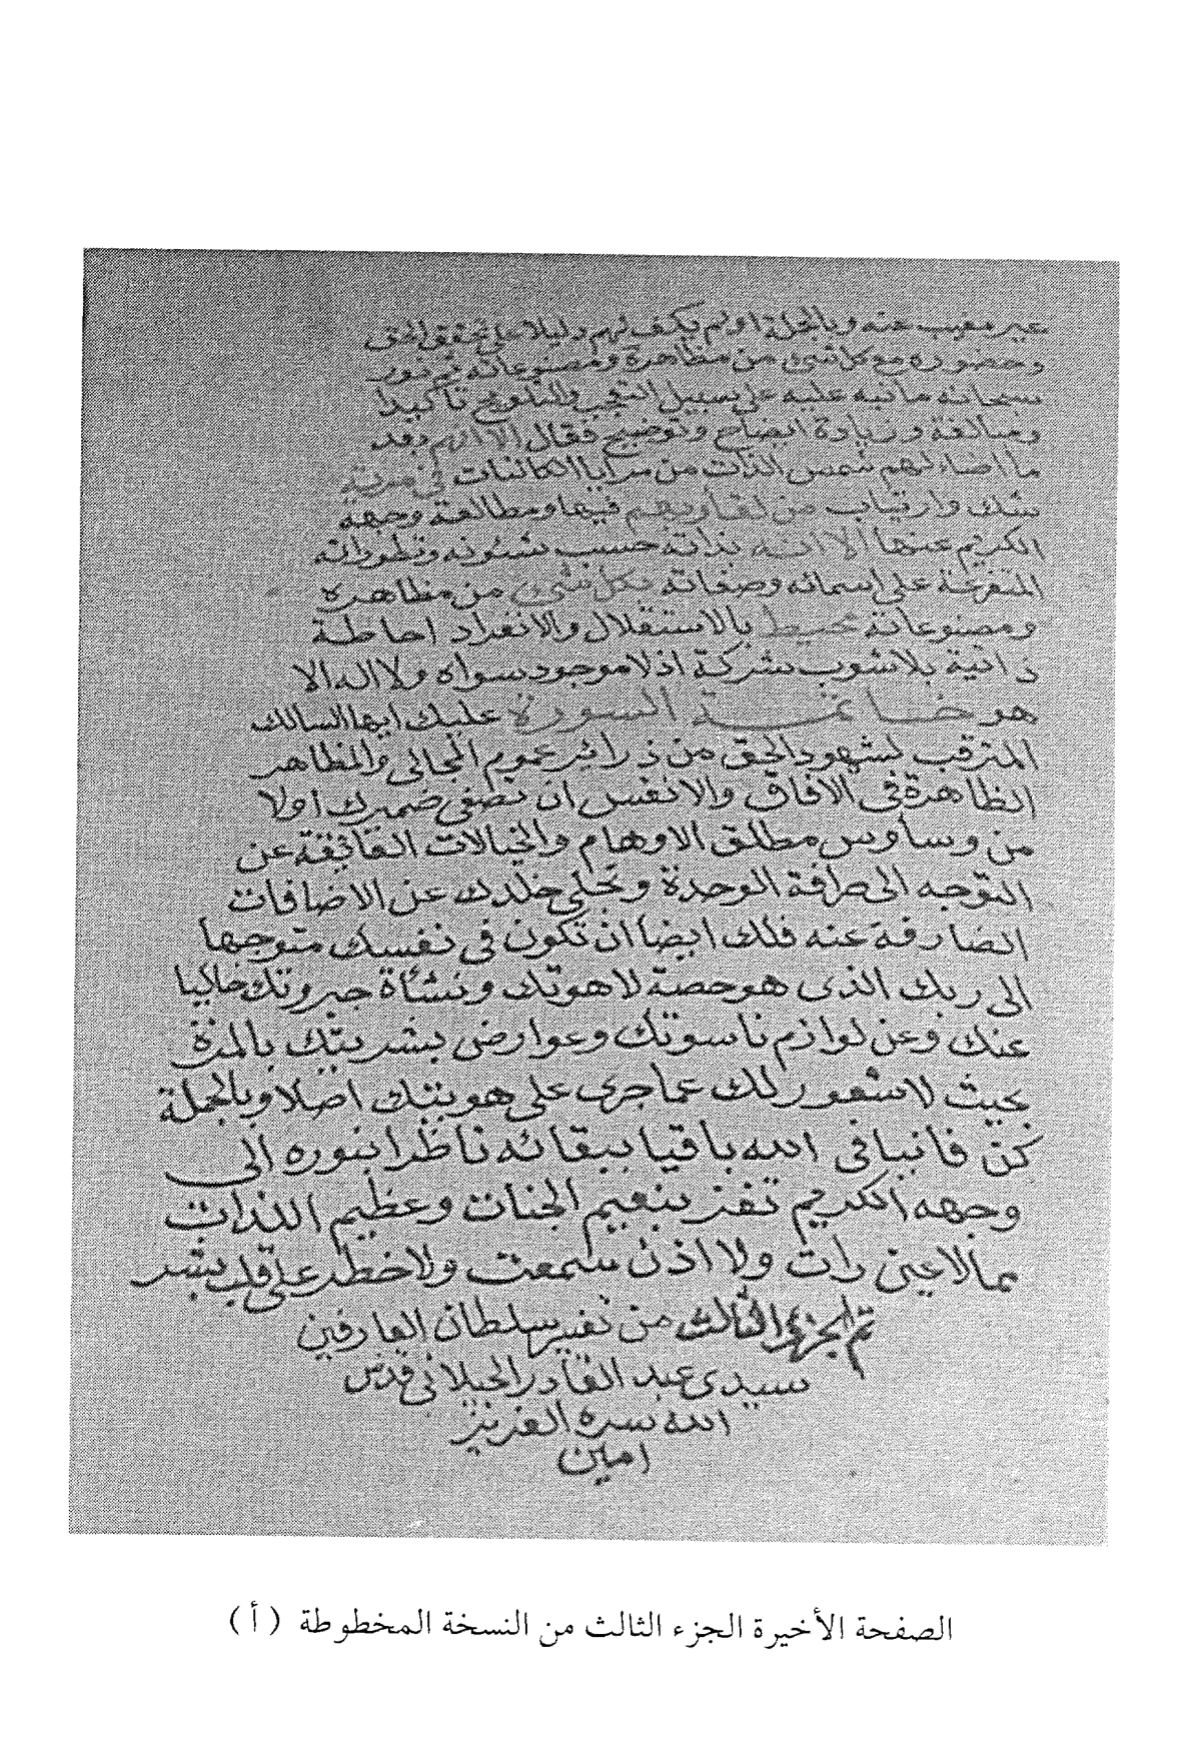 غير مغيب عنه وبالجملة اولم يكف لهم دليلا على تحقق الحق
وحضوره مع كل شئ من مظاهره ومصنوعاته ثم
سبحانه ما نبه عليه على سبيل التعجب والتلويح تأكيدا
ومبالغة وزيادة ايضاح وتوضيح فقال الا انهم بعد
ما اضاء لهم شمس الذات من مرايا الكائنات في مرية
شك وارتياب من لقاء ربهم فيها ومطالعة وجهه
الكريم عنها الا انه بذاته حسب شئونه وتطوراته
المتفرعة على اسمائه وصفاته بكل شئ من مظاهره
ومصنوعاته محيط بالاستقلال والانفراد احاطة
ذاتية بلا شوب شركة اذ لا موجود سواه ولا اله الا
هو خاتمة السورة عليك ايها السالك
المترقب لشهود الحق من ذرائر عموم المجالى والمظاهر
الظاهرة فى الافاق والانفس ان تصفى ضميرك اولا
من وساوس مطلق الاوهام والخيالات العائقة عن
التوجه الى صرافة الوحدة وتخلى خلدك عن الاضافات
الصارفة عنه فلك ايضا ان تكون فى نفسك متوجها
الى ربك الذى هو حصة لاهوتك ونشأة جبروتك خاليا
عنك وعن لوازم ناسوتك وعوارض بشريتك بالمرة
بحيث لا شعور لك عما جرى على هويتك اصلا وبالجملة
كن فانيا فى الله باقيا ببقائه ناظرا بنوره الى
وجهه الكريم تفز بنعيم الجنات وعظيم اللذات
مما لا عين رات ولا اذن سمعت ولا خطر على قلب بشر
تم الجزء الثالث من تفسير سلطان العارفين
سيدى عبد القادر الجيلانى قدس
الله سره العزيز
امين
الصفحة الأخيرة الجزء الثالث من النسخة المخطوطة ( أ )